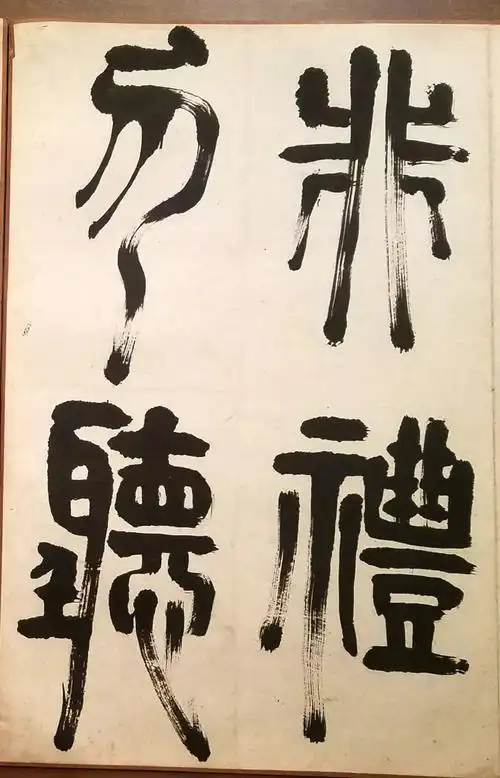 非禮
勿聽